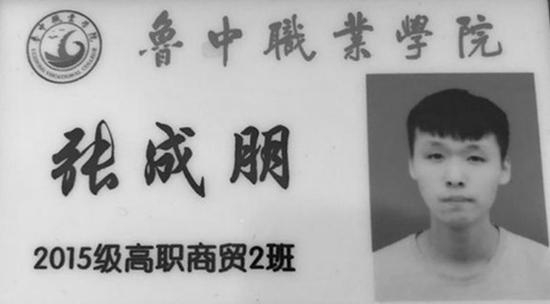 魯中職業學院
张成朋
2015级高职商贸2班